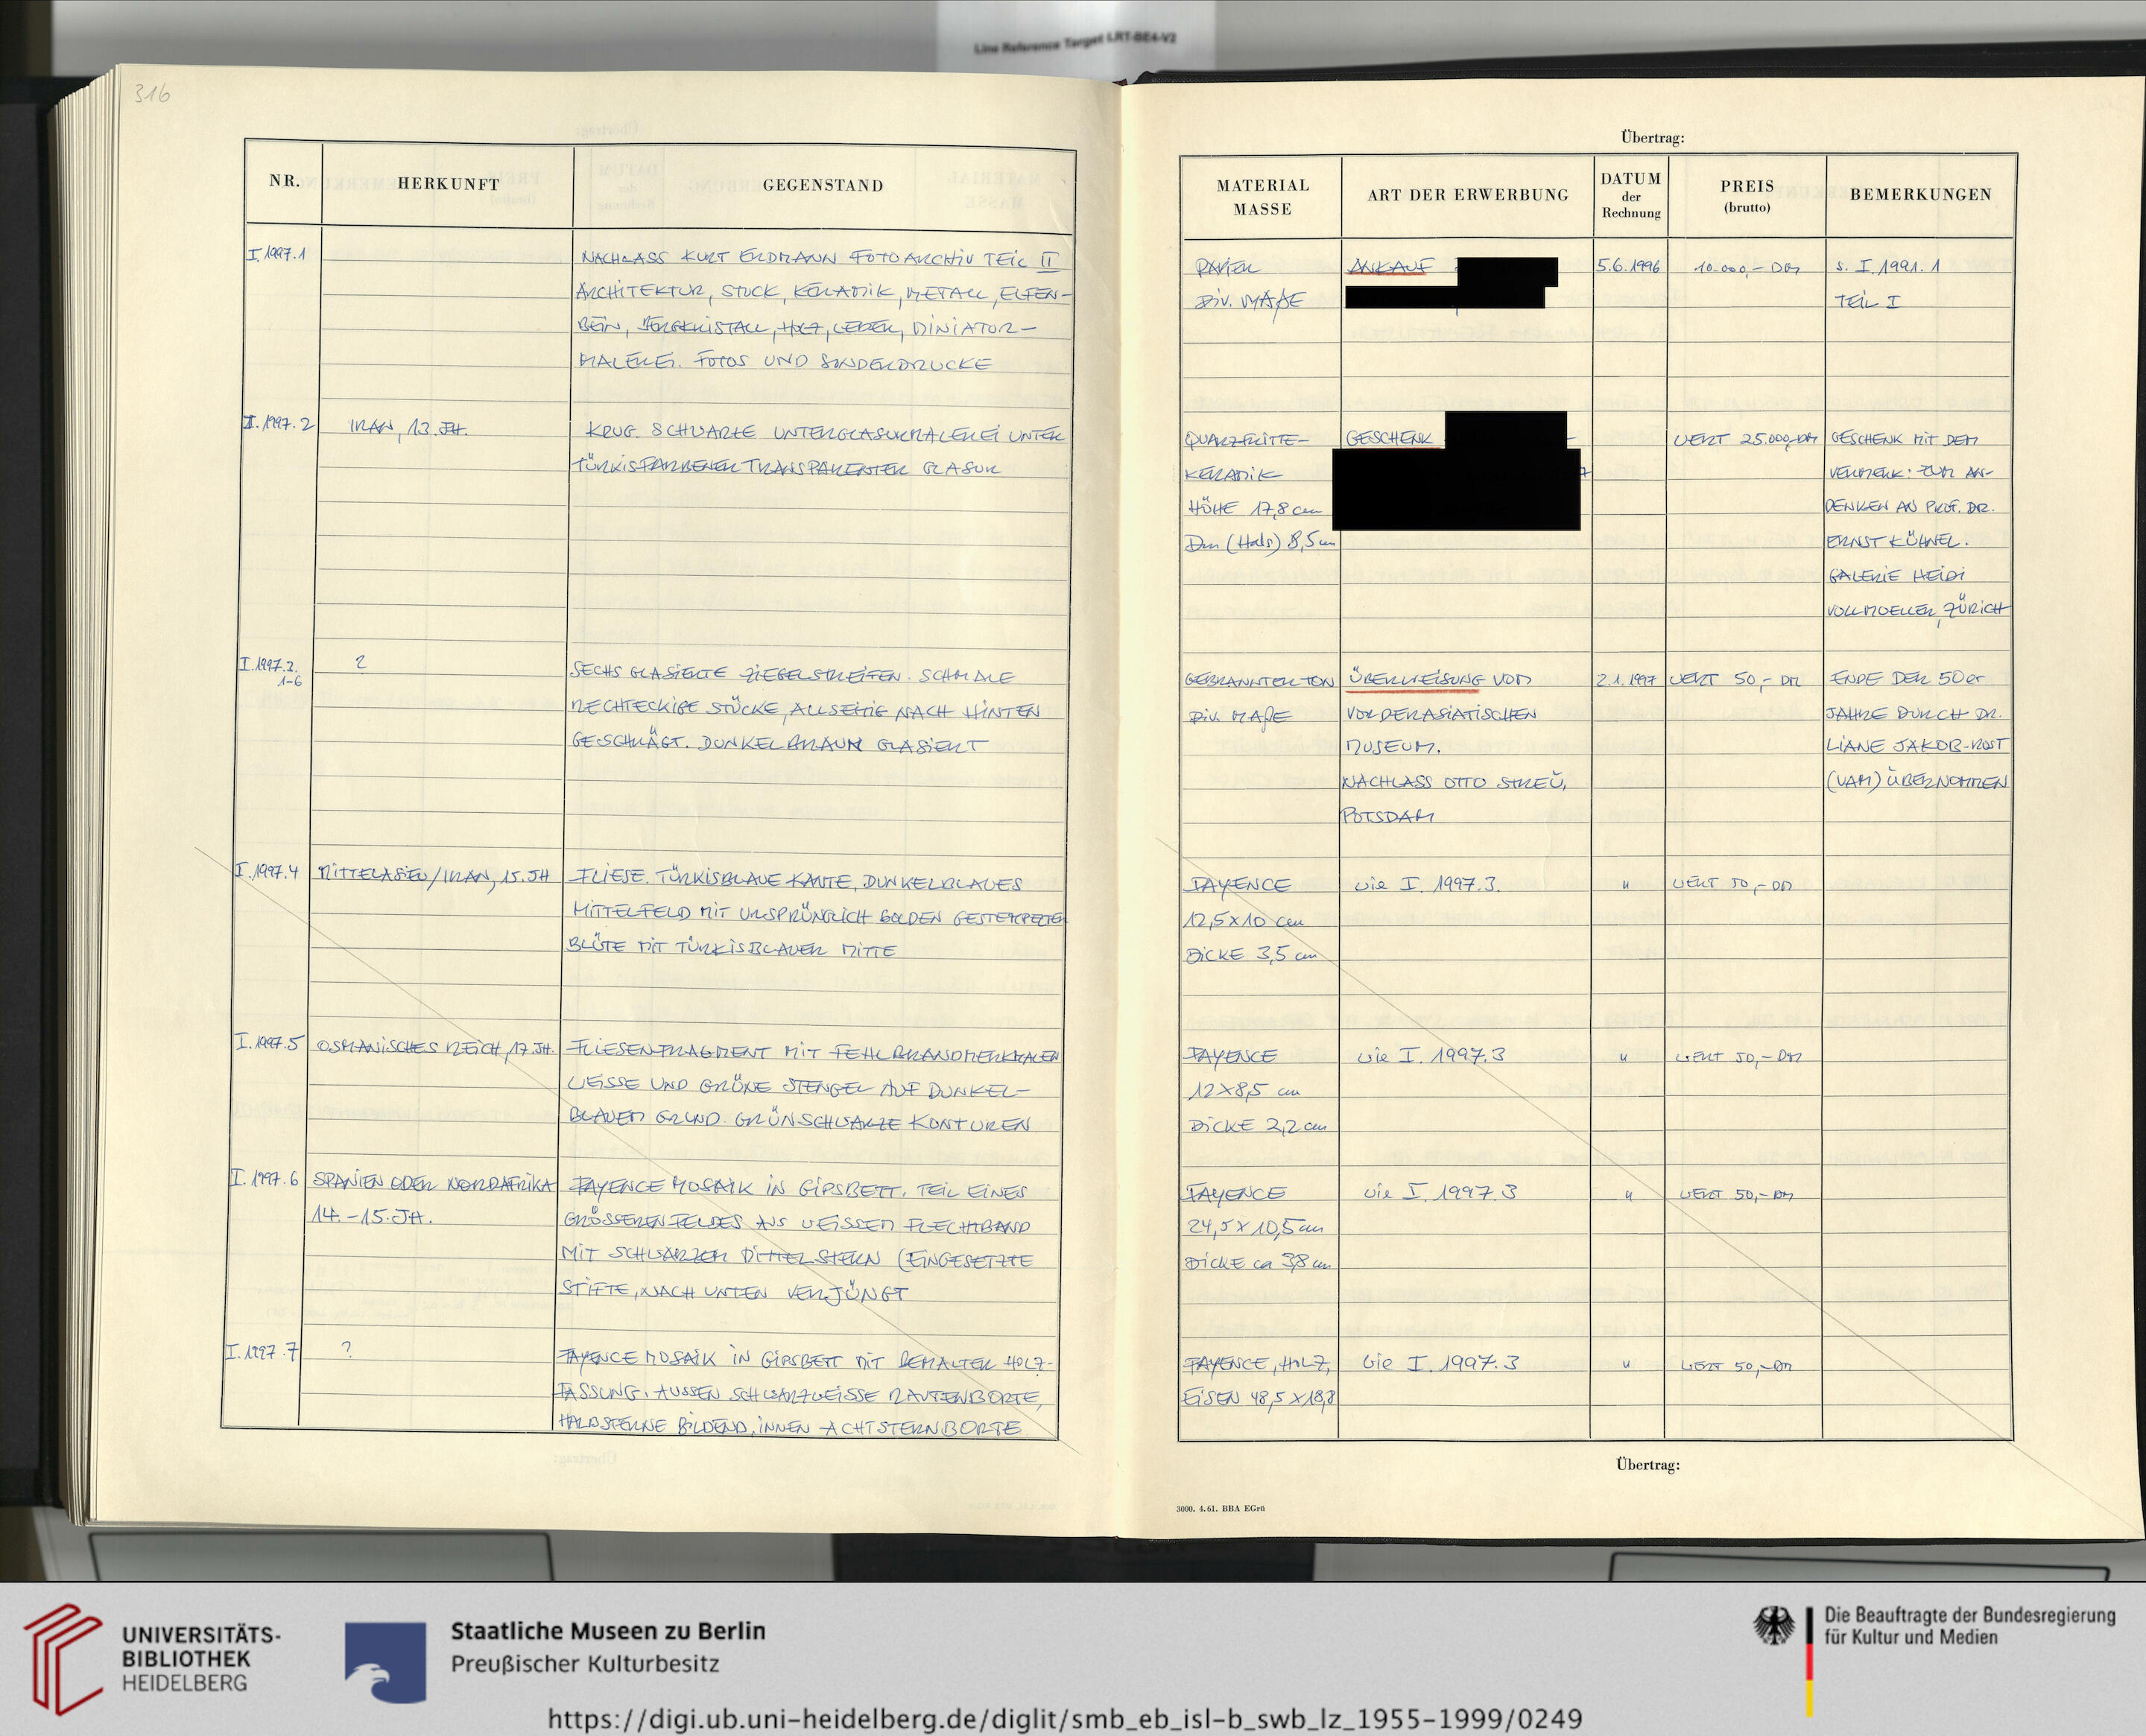 Line Reference Target LRT-BE4-V2
316
NR.
HERKUNFT
GEGENSTAND
I.1997.1
NACHLASS KURT ERDMANN FOTOARCHIV TEIL II
ARCHITEKTUR, STUCK, KERAMIK, METALL, ELFEN-
BEIN, BERGKRISTALL, HOLZ, LEDER, MINIATUR-
MALEREI. FOTOS UND SONDERDRUCKE
I.1997.2
IRAN, 13. JH.
KRUG. SCHWARZE UNTERGLASURMALEREI UNTER
TÜRKISFARBENER TRANSPARENTER GLASUR
I.1997.3.
1-6
?
SECHS GLASIERTE ZIEGELSTREIFEN. SCHMALE
RECHTECKIGE STÜCKE, ALLSEITIG NACH HINTEN
GESCHRÄGT. DUNKELBRAUN GLASIERT
I.1997.4
MITTELASIEN/IRAN, 15. JH
FLIESE. TÜRKISBLAUE KANTE, DUNKELBLAUES
MITTELFELD MIT URSPRÜNGLICH GOLDEN GESTEMPELTER
BLÜTE MIT TÜRKISBLAUER MITTE
I.1997.5
OSMANISCHES REICH, 17. JH.
FLIESENFRAGMENT MIT FEHLBRANDMERKMALEN
WEISSE UND GRÜNE STENGEL AUF DUNKEL-
BLAUEM GRUND. GRÜNSCHWARZE KONTUREN
I.1997.6
SPANIEN ODER NORDAFRIKA
14.-15. JH.
FAYENCEMOSAIK IN GIPSBETT. TEIL EINES
GRÖSSEREN FELDES AUS WEISSEM FLECHTBAND
MIT SCHWARZEM MITTELSTERN (EINGESETZTE
STIFTE, NACH UNTEN VERJÜNGT
I.1997.7
?
FAYENCEMOSAIK IN GIPSBETT MIT BEMALTER HOLZ-
FASSUNG. AUSSEN SCHWARZWEISSE RAUTENBORTE,
HALBSTERNE BILDEND, INNEN ACHTSTERNBORTE
Übertrag:
MATERIAL
MASSE
ART DER ERWERBUNG
DATUM
der
Rechnung
PREIS
(brutto)
BEMERKUNGEN
PAPIER
DIV. MAßE
ANKAUF
5.6.1996
10.000,- DM
s. I.1991.1
TEIL I
QUARZFRITTE-
KERAMIK
HÖHE 17,8 cm
Dm (Hals) 8,5 cm
GESCHENK
WERT 25.000,-DM
GESCHENK MIT DEM
VERMERK: ZUM AN-
DENKEN AN PROF. DR.
ERNST KÜHNEL.
GALERIE HEIDI
VOLLMOELLER, ZÜRICH
GEBRANNTER TON
Div. MAßE
ÜBERWEISUNG VOM
VORDERASIATISCHEN
MUSEUM.
NACHLASS OTTO STREU,
POTSDAM
2.1.1997
WERT 50,- DM
ENDE DER 50er
JAHRE DURCH DR.
LIANE JAKOB-ROST
(VAM) ÜBERNOMMEN
FAYENCE
12,5x10 cm
DICKE 3,5 cm
wie I. 1997.3.
"
WERT 50,- DM
FAYENCE
12x8,5 cm
DICKE 2,2 cm
wie I. 1997.3
"
WERT 50,- DM
FAYENCE
24,5x10,5 cm
DICKE ca 3,8 cm
wie I. 1997.3
"
WERT 50,- DM
FAYENCE, HOLZ,
EISEN 48,5x18,8
wie I. 1997.3
"
WERT 50,- DM
Übertrag:
3000. 4.61. BBA EGrü
UNIVERSITÄTS-
BIBLIOTHEK
HEIDELBERG
Staatliche Museen zu Berlin
Preußischer Kulturbesitz
Die Beauftragte der Bundesregierung
für Kultur und Medien
https://digi.ub.uni-heidelberg.de/diglit/smb_eb_isl-b_swb_lz_1955-1999/0249